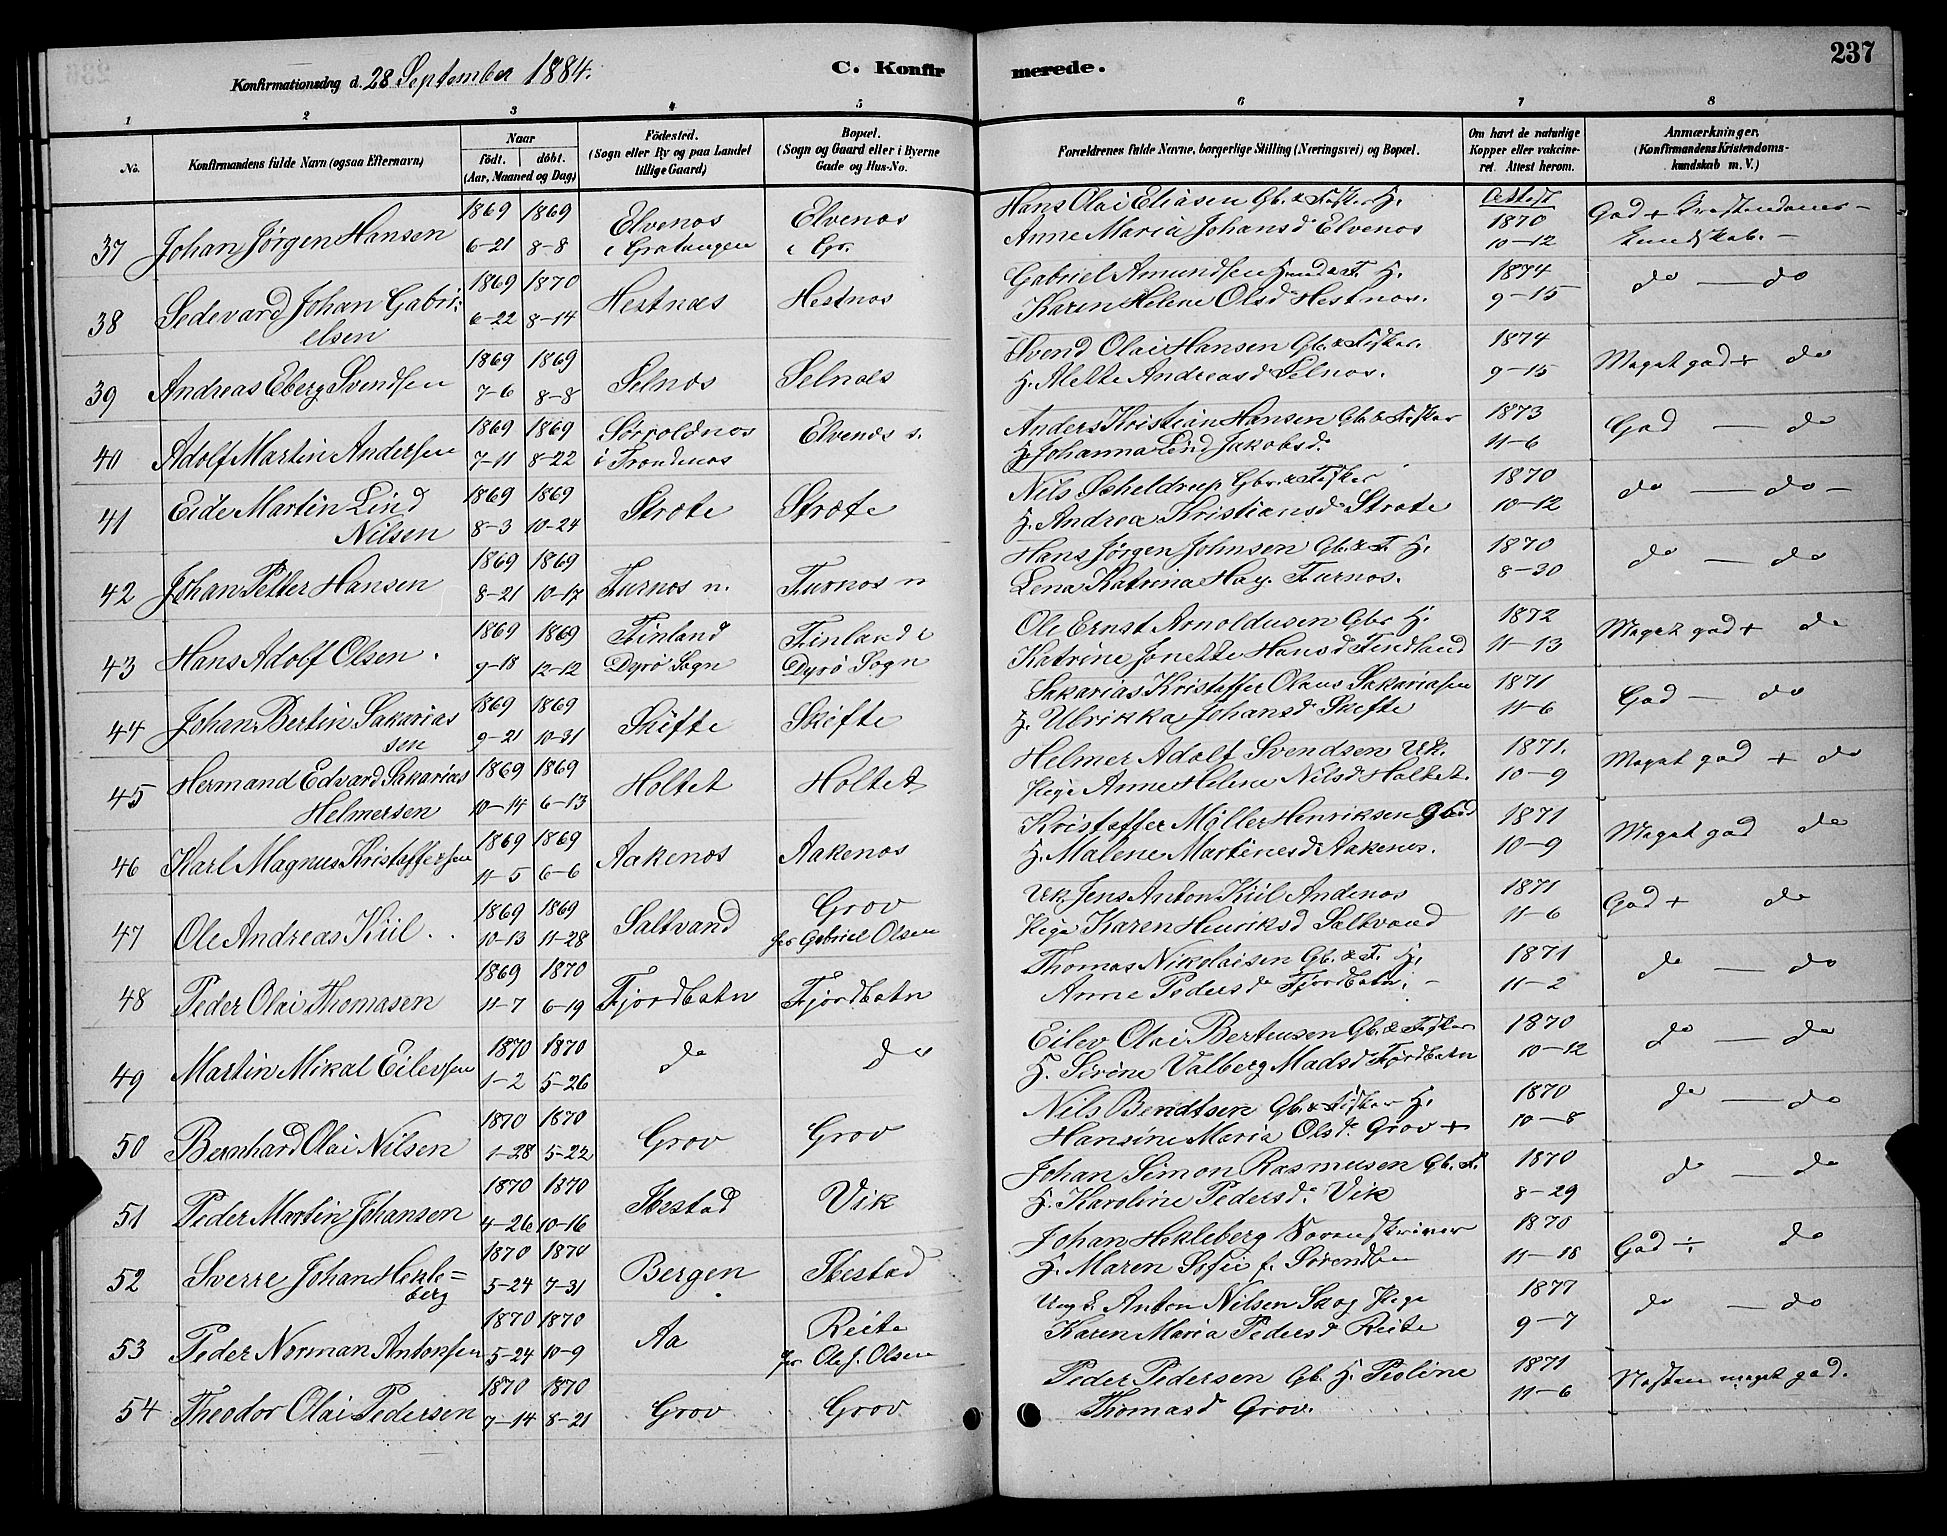 237
Konfirmationsdag d. 28 September 1884.
C. Konfirmerede.
1 2 3 4 5 6 7 8
No.
Konfirmandens fulde Navn (ogsaa Efternavn)
Naar
födt. döbt.
(Aar, Maaned og Dag)
Födested.
(Sogn eller By og paa Landet
tillige Gaard)
Bopæl.
(Sogn og Gaard eller i Byerne
Gade og Hus-No.
Forældrenes fulde Navne, borgerlige Stilling (Næringsvei) og Bopæl.
Om havt de naturlige
Kopper eller vakcine-
ret. Attest herom.
Anmærkninger.
(Konfirmandens Kristendoms-
kundskab m. V.)
37 Johan Jørgen Hansen 1869 6-21 1869 8-8 Elvenes i Gratangen Elvenes i Gr.
Hans Olai Eliasen Gb. & Fisker H. Attest
Anne Maria Johansd Elvenes 1870 10-12 God + Kristendoms-
kundskab. -
38 Sedevard Johan Gabri- 1869 6-22 1870 8-14 Hestnæs Hestnes
elsen
Gabriel Amundsen H. 1874
Karen Helene Olsd Hestnes. 9-15 do — do
39 Andreas Eberg Svendsen 1869 7-6 1869 8-8 Selnæs Selnæs
Svend Olai Hansen Gb. & Fisker. 1874
H. Mette Andreasd Selnes. 9-15 Meget god + do
40 Adolf Martin Andersen 1869 7-11 1869 8-22 Sørvoldnes i Trondenes Elvenes s.
Anders Kristian Hansen Gb. & Fisker 1873
H. Johanna Lind Jakobsd. 11-6 God — do
41 Eide Martin Lind 1869 8-3 1869 10-24 Stræte Stræte
Nilsen
Nils Scheldrup Gbr. & Fisker 1870
H. Andrea Kristiansd Stræte 10-12 do — do —
42 Johan Petter Hansen 1869 8-21 1869 10-17 Furnes n. Furnes n
Hans Jørgen Johnsen Gb. & F. H. 1870
Lena Katrina Hay. Furnes. 8-30 do — do
43 Hans Adolf Olsen. 1869 9-18 1869 12-12 Finland Dyrø Sogn Finland i Dyrø Sogn
Ole Ernst Arnoldusen Gbr H. 1872
Katrine Jonette Hansd Findland 11-13 Meget god + do
44 Johan Bertin Sakarias 1869 9-21 1869 10-31 Skifte Skifte
sen
Sakarias Kristoffer Olaus Sakariasen 1871
H. Ulrikka Johansd Skefte 11-6 God — do
45 Hermand Edvard Sakarias 1869 10-14 1869 6-13 Holtet Holtet
Helmersen
Helmer Adolf Svendsen Uk. 1871.
Pige Anne Helene Nilsd Holtet. 10-9 Meget god + do
46 Karl Magnus Kristoffersen 1869 11-5 1869 6-6 Aakenes Aakenes
Kristoffer Møller Henriksen 1871
H. Malene Martinesd Aakenes. 10-9 Meget god do
47 Ole Andreas Kiil.. 1869 10-13 1869 11-28 Saltvand Grov
for Gabriel Olsen
Uk. Jens Anton Kiil Andenes 1871
Pige Karen Henriksd Saltvand 11-6 God + do
48 Peder Olai Thomasen 1869 11-7 1870 6-19 Fjordbotn Fjordbotn
Thomas Nikolaisen Gb. & F. H. 1871
Anne Pedersd Fjordbotn. - 11-2 do — do
49 Martin Mikal Eilersen 1870 1-2 1870 5-26 do do
Eilev Olai Berteusen Gb. & Fisker 1870
H. Sirine Valberg Madsd Fjordbotn 10-12 do — do
50 Bernhard Olai Nilsen 1870 1-28 1870 5-22 Grov Grov
Nils Bendtsen Gb. & Fisker H. 1870
Hansine Maria Olsd. Grov + 10-8 do — do
51 Peder Martin Johansen 1870 4-26 1870 10-16 Ibestad Vik
Johan Simon Rasmusen Gb. F. 1870
H. Karoline Pedersd. Vik 8-29 do — do
52 Sverre Johan Hekle= 1870 5-24 1870 7-31 Bergen Ibestad
berg
Johan Hekleberg Sorenskriver 1870
H. Maren Sofie f. 11-18 God ÷ do
53 Peder Norman Antonsen 1870 5-24 1870 10-9 Aa Reite
for Ole J. Olsen
Ung. Anton Nilsen Skog Pige 1877
Karen Maria Pedersd Reite 9-7 do — do
54 Theodor Olai Pedersen 1870 7-14 1870 8-21 Grov Grov
Peder Pedersen Gb. H. Peoline 1871
Thomasd Grov. 11-6 Næsten meget god.